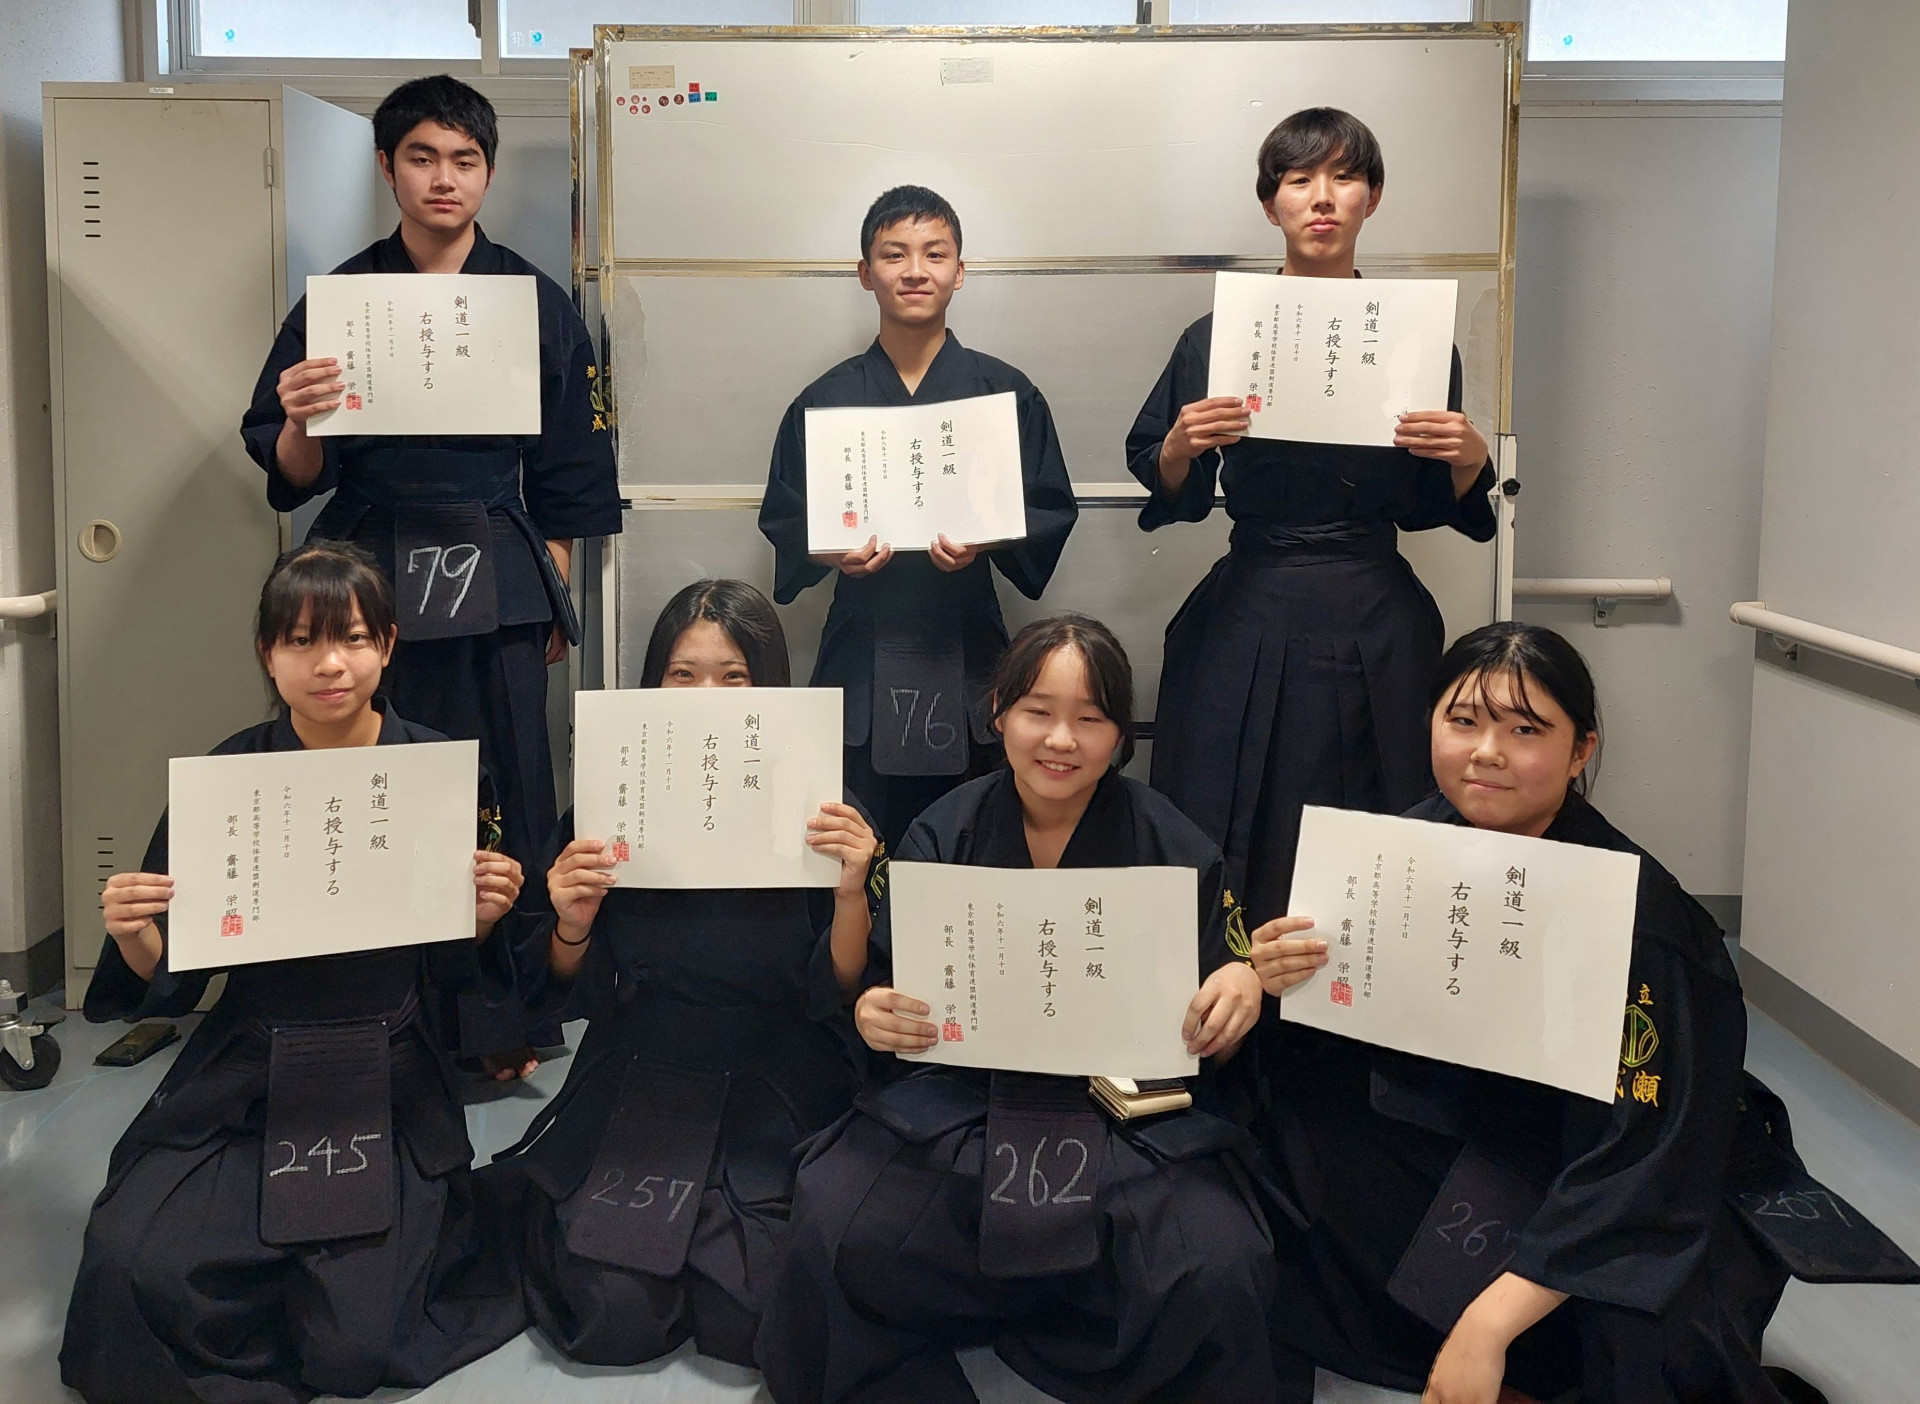 剣道一級
右授与する
令和六年十一月十日
東京都高等学校体育連盟剣道専門部
部長 齋藤 栄昭
剣道一級
右授与する
令和六年十一月十日
東京都高等学校体育連盟剣道専門部
部長 齋藤 栄昭
剣道一級
右授与する
令和六年十一月十日
東京都高等学校体育連盟剣道専門部
部長 齋藤 栄昭
79
76
剣道一級
右授与する
令和六年十一月十日
東京都高等学校体育連盟剣道専門部
部長 齋藤 栄昭
剣道一級
右授与する
令和六年十一月十日
東京都高等学校体育連盟剣道専門部
部長 齋藤 栄昭
剣道一級
右授与する
令和六年十一月十日
東京都高等学校体育連盟剣道専門部
部長 齋藤 栄昭
剣道一級
右授与する
令和六年十一月十日
東京都高等学校体育連盟剣道専門部
部長 齋藤 栄昭
立
成瀬
245
257
262
267
267